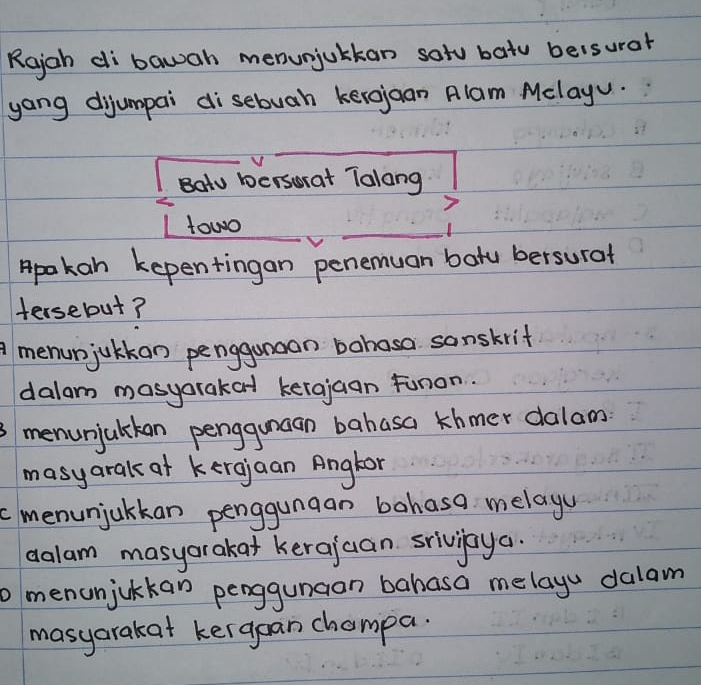 Rajah di bawah menunjukkan satu batu bersurat
yang dijumpai di sebuah kerajaan Alam Melayu.
Batu bersurat Talang
towo
Apakah kepentingan penemuan batu bersurat
tersebut?
A menunjukkan penggunaan bahasa sanskrit
dalam masyarakat kerajaan Funan.
B menunjukkan penggunaan bahasa khmer dalam
masyarakat kerajaan Angkor
C menunjukkan penggunaan bahasa melayu
dalam masyarakat kerajaan srivijaya.
D menunjukkan penggunaan bahasa melayu dalam
masyarakat kerajaan champa.